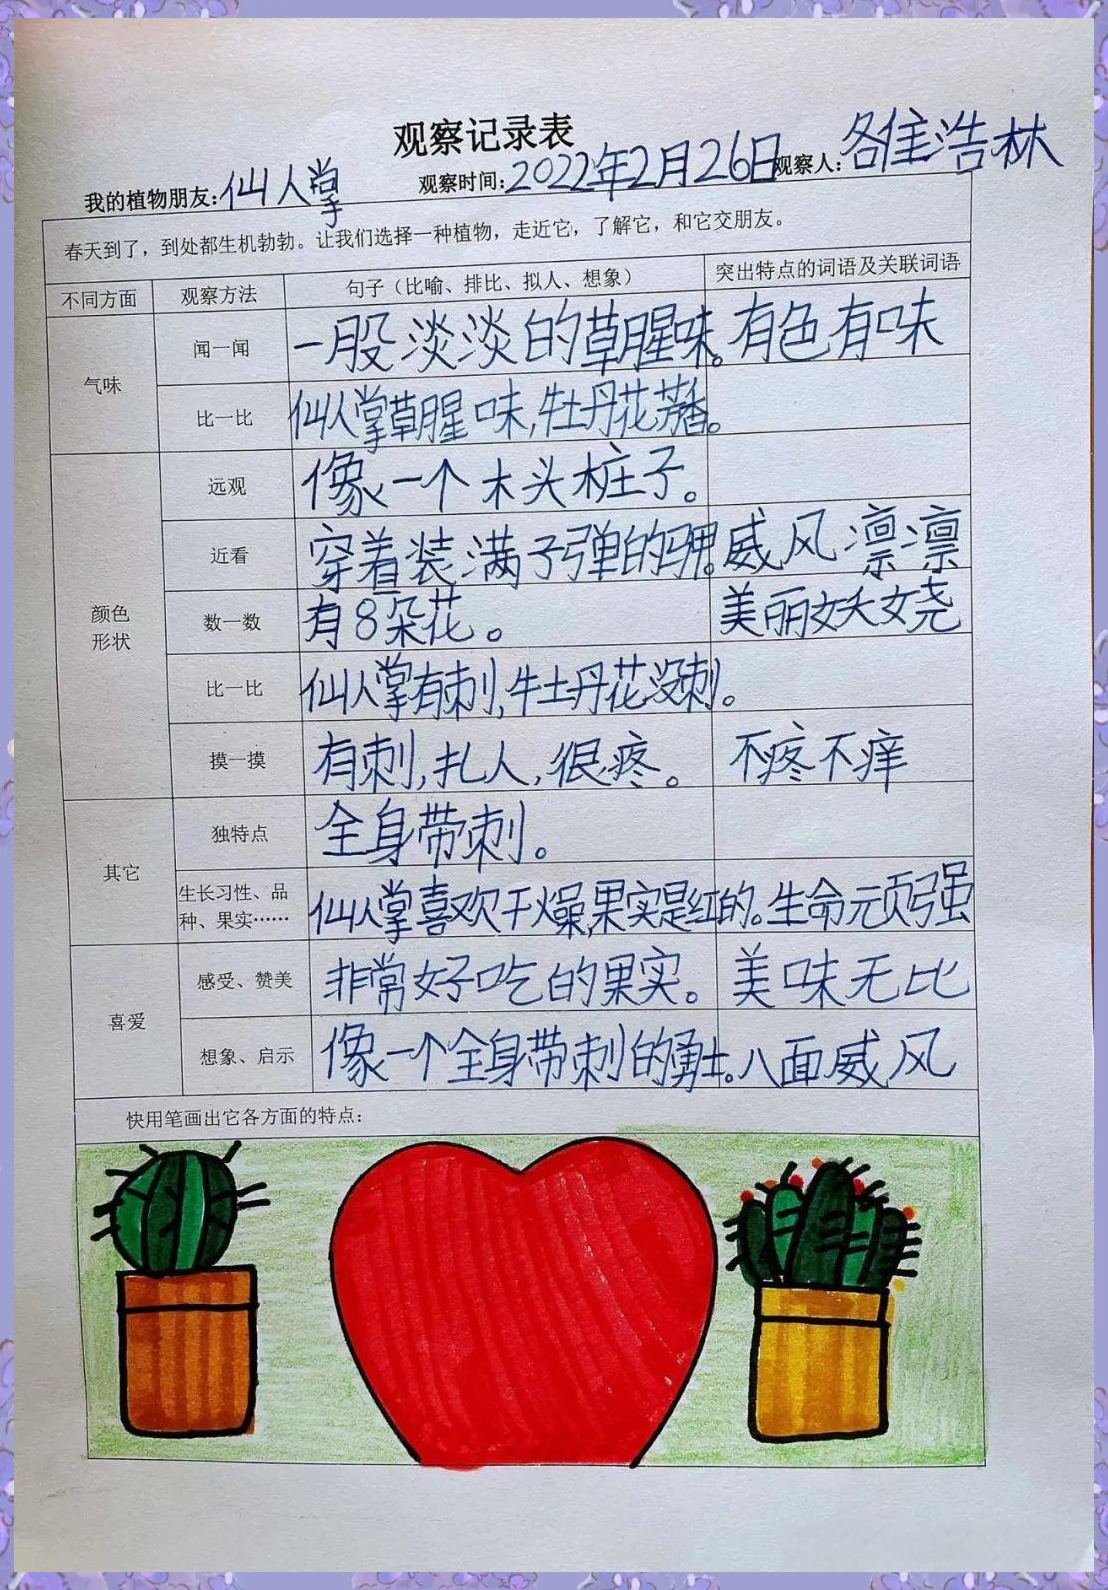 观察记录表
我的植物朋友:仙人掌 观察时间:2022年2月26日 观察人: 浩林
春天到了，到处都生机勃勃。让我们选择一种植物，走近它，了解它，和它交朋友。
不同方面 观察方法 句子（比喻、排比、拟人、想象） 突出特点的词语及关联词语
气味 闻一闻 一股淡淡的草腥味。 有色有味
比一比 仙人掌草腥味,牡丹花芳香。
颜色
形状
远观 像一个木头桩子。
近看 穿着装满子弹的 威风凛凛
数一数 有8朵花。 美丽妖娆
比一比 仙人掌有刺,牡丹花没刺。
摸一摸 有刺,扎人,很疼。 不疼不痒
其它 独特点 全身带刺。
生长习性、品
种、果实…… 仙人掌喜欢干燥,果实是红的。 生命元页强
喜爱 感受、赞美 非常好吃的果实。 美味无比
想象、启示 像一个全身带刺的勇士。 八面威风
快用笔画出它各方面的特点: